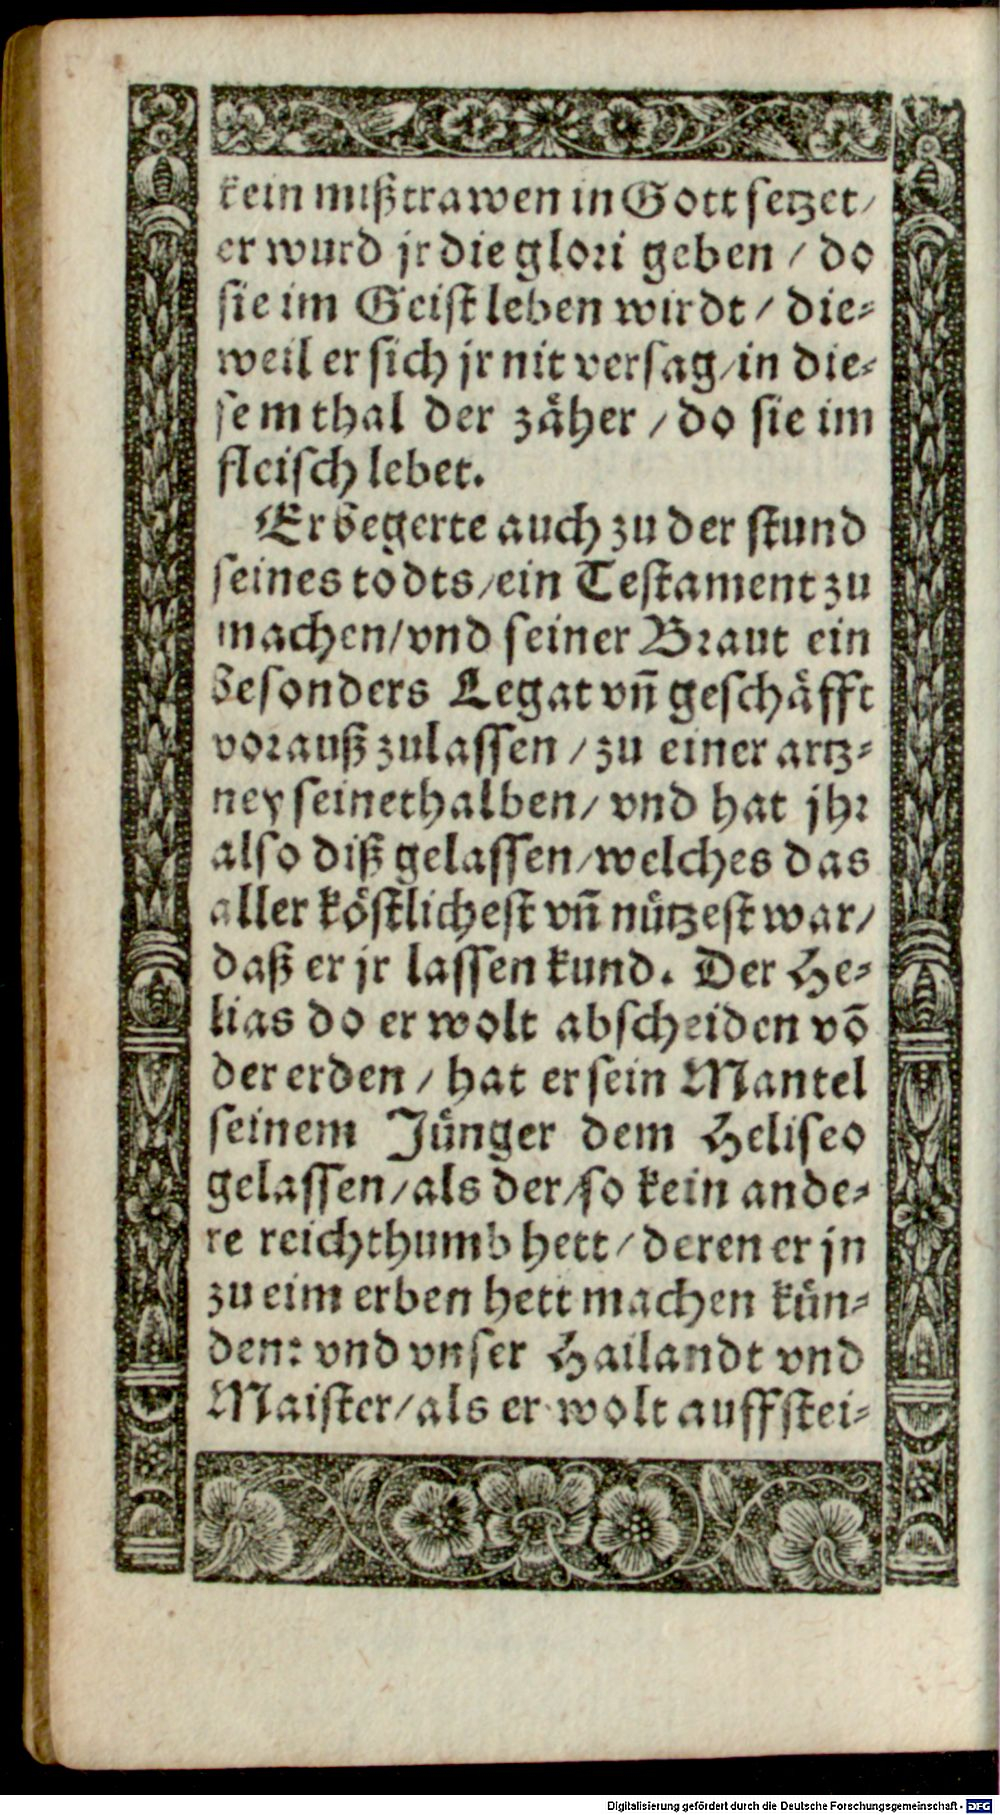 kein mißtrawen in Gott setzet/
er wurd jr die glori geben / do
sie im Geist leben wirdt / die⸗
weil er sich jr nit versag/in die⸗
sem thal der zäher / do sie im
fleisch lebet.
Er begerte auch zu der stund
seines todts/ein Testament zu
machen/vnd seiner Braut ein
besonders Legat vñ geschäfft
vorauß zulassen / zu einer artz⸗
ney seinethalben/ vnd hat jhr
also diß gelassen/welches das
aller köstlichest vñ nützest war/
daß er jr lassen kund. Der He⸗
lias do er wolt abscheiden võ
der erden / hat er sein Mantel
seinem Jünger dem Heliseo
gelassen/als der/so kein ande⸗
re reichthumb hett/deren er jn
zu eim erben hett machen kün⸗
den: vnd vnser Hailandt vnd
Maister/als er wolt auffstei⸗
Digitalisierung gefördert durch die Deutsche Forschungsgemeinschaft - DFG